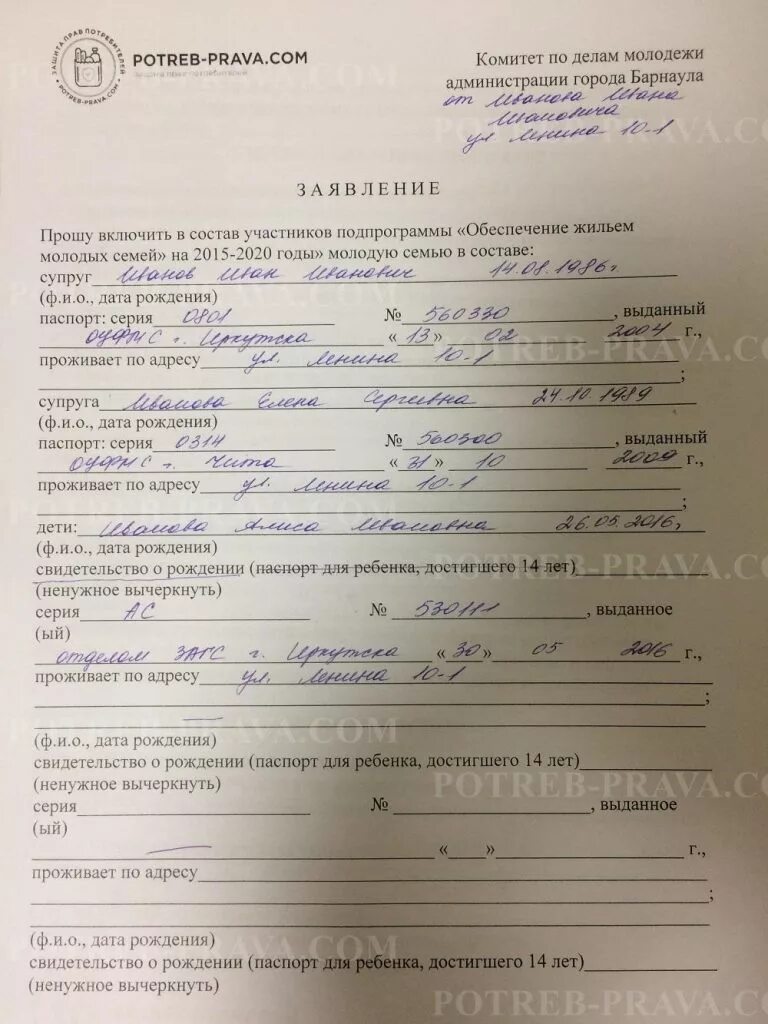 ЗАЩИТА ПРАВ ПОТРЕБИТЕЛЕЙ
POTREB-PRAVA.COM
POTREB-PRAVA.COM
защита прав потребителей
Комитет по делам молодежи
администрации города Барнаула
от Иванова Ивана
Ивановича
ул Ленина 10-1
ЗАЯВЛЕНИЕ
Прошу включить в состав участников подпрограммы «Обеспечение жильем
молодых семей» на 2015-2020 годы» молодую семью в составе:
супруг Иванов Иван Иванович 14.08.1986г.
(ф.и.о., дата рождения)
паспорт: серия 0801 № 560330, выданный
ОУФМС г. Иркутска «13» 02 2004 г.,
проживает по адресу ул. Ленина 10-1
;
супруга Иванова Елена Сергеевна 24.10.1989
(ф.и.о., дата рождения)
паспорт: серия 0314 № 560300, выданный
ОУФМС г. Чита «31» 10 2009 г.,
проживает по адресу ул. Ленина 10-1
;
дети: Иванова Алиса Ивановна 26.05.2016г
(ф.и.о., дата рождения)
свидетельство о рождении (паспорт для ребенка, достигшего 14 лет)
(ненужное вычеркнуть)
серия АС № 530111, выданное
(ый)
отделом ЗАГС г. Иркутска «30» 05 2016 г.,
проживает по адресу ул. Ленина 10-1
;
(ф.и.о., дата рождения)
свидетельство о рождении (паспорт для ребенка, достигшего 14 лет)
(ненужное вычеркнуть)
серия № , выданное
(ый)
« » г.,
проживает по адресу
;
(ф.и.о., дата рождения)
свидетельство о рождении (паспорт для ребенка, достигшего 14 лет)
(ненужное вычеркнуть)